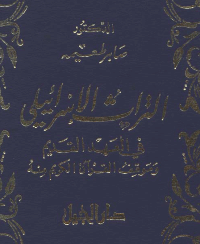 الدكتور
صابر طعيمة
التراث الإسرائيلي
في العهد القديم
وموقف القرآن الكريم منه
دار الجيل